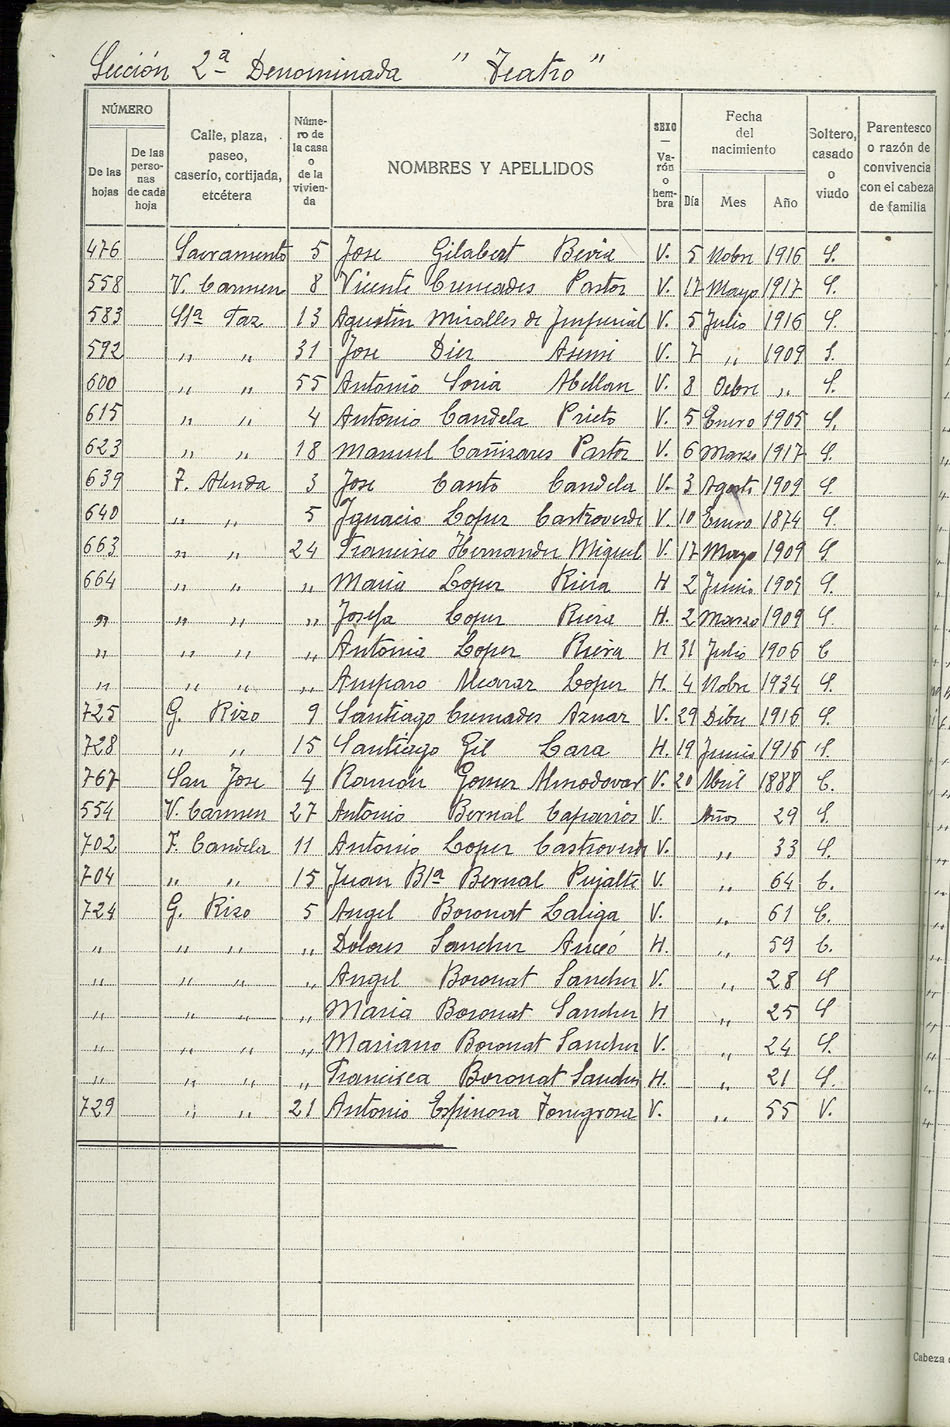 Sección 2ª Denominada "Teatro"
NÚMERO
De las hojas
De las perso- nas de cada hoja
Calle, plaza, paseo, caserío, cortijada, etcétera
Núme- ro de la casa o de la vivien- da
NOMBRES Y APELLIDOS
SEXO — Va- rón o hem- bra
Fecha del nacimiento
Día Mes Año
Soltero, casado o viudo
Parentesco o razón de convivencia con el cabeza de familia
476 Sacramento 5 Jose Gilabert Bevia V. 5 Nobre 1916 S.
558 V. Carmen 8 Vicente Cremades Pastor V. 17 Mayo 1917 S.
583 Sta Faz 13 Agustin Miralles de Imperial V. 5 Julio 1916 S.
592 " " 31 Jose Diez Asensi V. 7 " 1909 S.
600 " " 55 Antonio Soria Abellan V. 8 Octbre " S.
615 " " 4 Antonio Candela Prieto V. 5 Enero 1905 S.
623 " " 18 Manuel Cañizares Pastor V. 6 Marzo 1917 S.
639 F. 3 Jose Canto Candela V. 3 Agosto 1909 S.
640 " " 5 Ignacio Lopez Castroverde V. 10 Enero 1874 S.
663 " " 24 Francisco Hernandez Miquel V. 17 Mayo 1909 S.
664 " " " Maria Lopez Riera H 2 Junio 1909 S.
" " " " Josefa Lopez Riera H. 2 Marzo 1909 S.
" " " " Antonia Lopez Riera H 31 Julio 1906 C
" " " " Amparo Lopez H. 4 Nobre 1934 S.
725 G. Rizo 9 Santiago Cremades Aznar V. 29 Dibre 1916 S.
728 " " 15 Santiago Gil Lara H. 19 Junio 1916 S.
767 San Jose 4 Ramón Gomez Almodovar V. 20 Abril 1888 C.
554 V. Carmen 27 Antonio Bernal Caparrós V. Años 29 S.
702 F. Candela 11 Antonio Lopez Castroverde V. " 33 S.
704 " " 15 Juan Bta Bernal Pujalte V. " 64 C.
724 G. Rizo 5 Angel Boronat Laliga V. " 61 C.
" " " " Dolores Sanchez H. " 59 C.
" " " " Angel Boronat Sanchez V. " 28 S
" " " " Maria Boronat Sanchez H " 25 S
" " " " Mariano Boronat Sanchez V. " 24 S.
" " " " Francisca Boronat Sanchez H. " 21 S.
729 " " 21 Antonio Espinosa Torregrosa V. " 55 V.
Cabeza